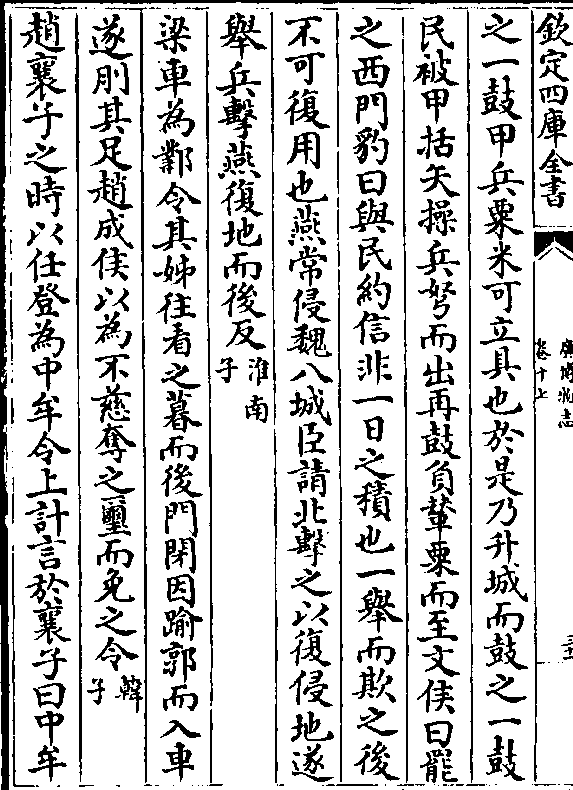 欽定四庫全書
廣博物志
卷十七
之一鼓甲兵粟米可立具也於是乃升城而鼓之一鼓
民被甲括矢操兵弩而出再鼓負輦粟而至文侯曰罷
之西門豹曰與民約信非一日之積也一舉而欺之後
不可復用也燕常侵魏八城臣請北擊之以復侵地遂
舉兵擊燕復地而後反淮南子
梁車為鄴令其姊往看之暮而後門閉因踰郭而入車
遂刖其足趙成侯以為不慈奪之璽而免之令韓子
趙襄子之時以任登為中牟令上計言於襄子曰中牟